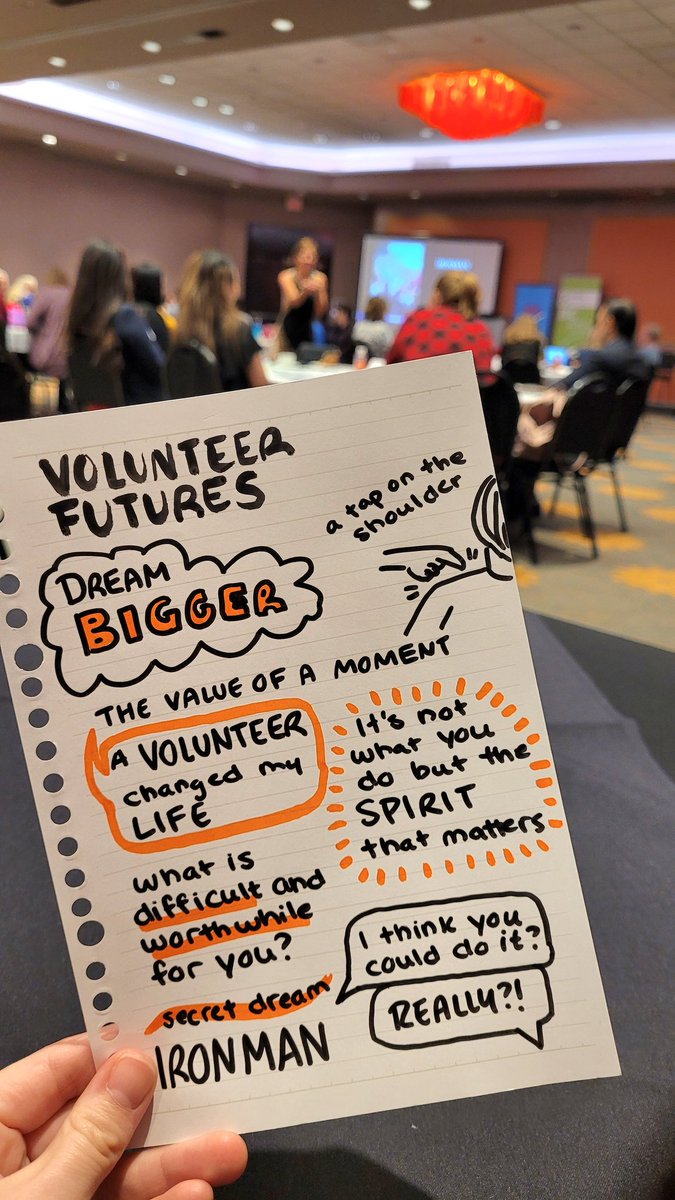 VOLUNTEER
FUTURES
a tap on the
shoulder
DREAM
BIGGER
THE VALUE OF A MOMENT
A VOLUNTEER
changed my
LIFE
It's not
what you
do but the
SPIRIT
that matters
what is
difficult and
worthwhile
for you?
I think you
could do it?
REALLY?!
secret dream
IRONMAN